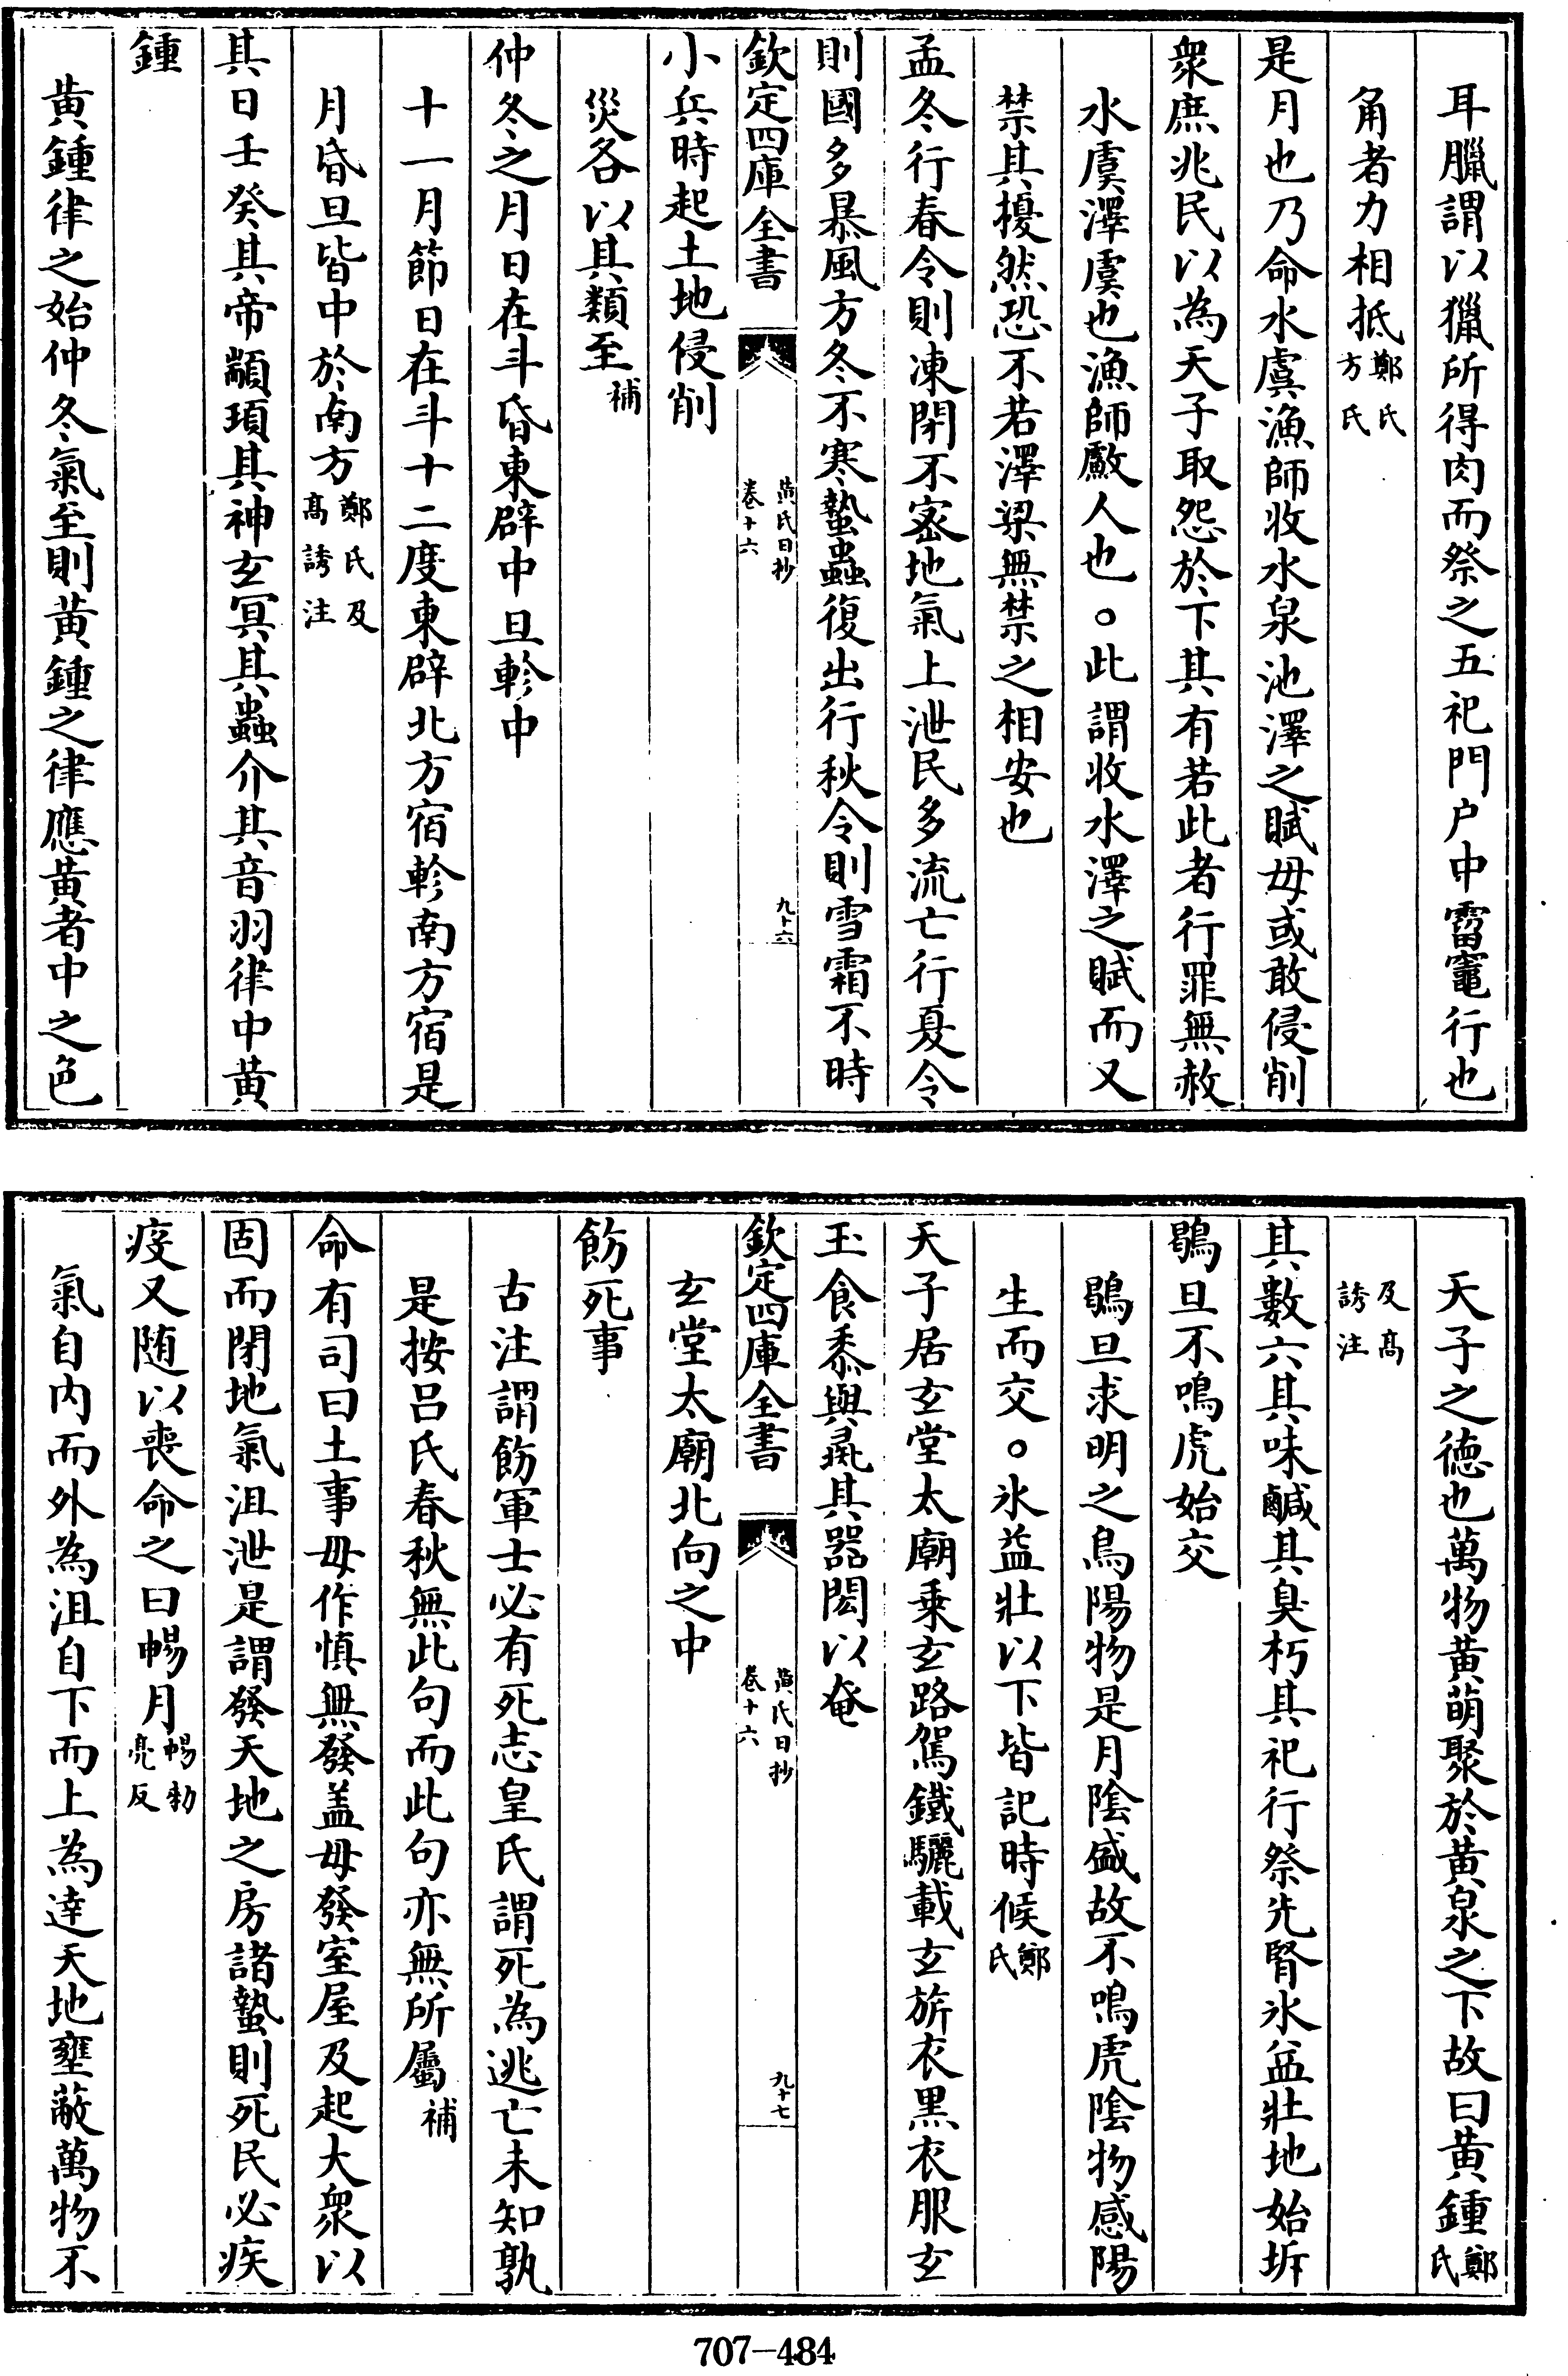 耳臘謂以獵所得肉而祭之五祀門户中霤竈行也
角者力相抵鄭氏方氏
是月也乃命水虞漁師收水泉池澤之賦毋或敢侵削
衆庶兆民以為天子取怨於下其有若此者行罪無赦
水虞澤虞也漁師䱷人也。此謂收水澤之賦而又
禁其擾然恐不若澤梁無禁之相安也
孟冬行春令則凍閉不宻地氣上泄民多流亡行夏令
則國多暴風方冬不寒蟄蟲復出行秋令則雪霜不時
欽定四庫全書
黄氏日抄
卷十六
九十六
小兵時起土地侵削
災各以其類至補
仲冬之月日在斗昏東辟中旦軫中
十一月節日在斗十二度東辟北方宿軫南方宿是
月昏旦皆中於南方鄭氏及高誘注
其日壬癸其帝顓頊其神玄冥其蟲介其音羽律中黄
鍾
黄鍾律之始仲冬氣至則黄鍾之律應黄者中之色
天子之德也萬物黄萌聚於黄泉之下故曰黄鍾鄭氏
及高誘注
其數六其味鹹其臭朽其祀行祭先腎氷益壯地始坼
鶡旦不鳴虎始交
鶡旦求明之鳥陽物是月陰盛故不鳴虎陰物感陽
生而交。氷益壯以下皆記時候鄭氏
天子居玄堂太廟乗玄路駕鐵驪載玄旂衣黒衣服玄
玉食黍與彘其器閎以奄
欽定四庫全書
黄氏日抄
卷十六
九十七
玄堂太廟北向之中
飭死事
古注謂飭軍士必有死志皇氏謂死為逃亡未知孰
是按吕氏春秋無此句而此句亦無所屬補
命有司曰土事毋作慎無發盖毋發室屋及起大衆以
固而閉地氣沮泄是謂發天地之房諸蟄則死民必疾
疫又随以喪命之曰暢月暢勑亮反
氣自内而外為沮自下而上為逹天地壅蔽萬物不
707-484